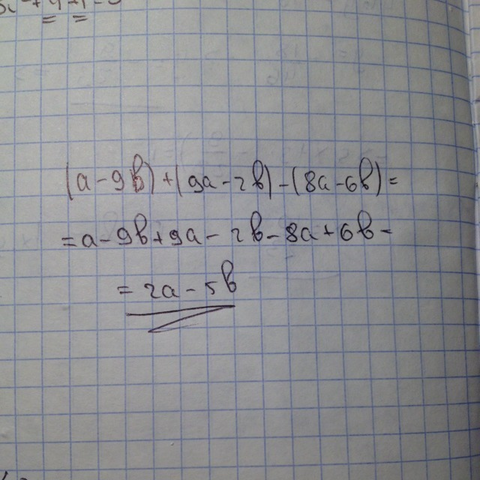 (a-9b)+(9a-2b)-(8a-6b)=
=a-9b+9a-2b-8a+6b=
=2a-5b